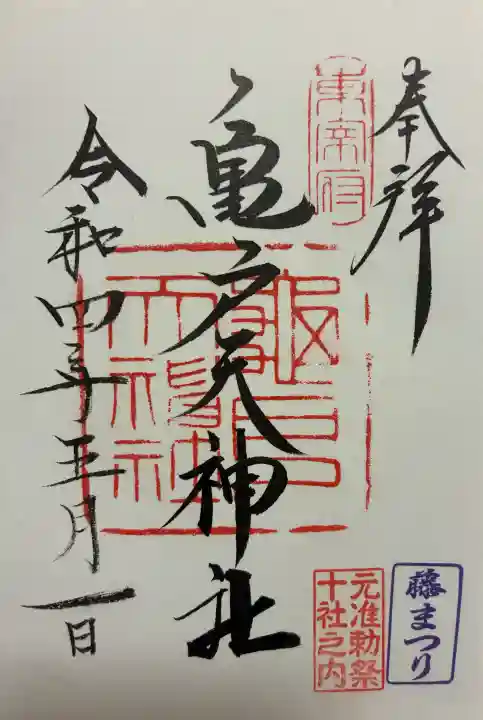 奉拝
東宰府
亀戸天神社
龜戸天神社
令和四年五月一日
元准勅祭
十社之内
藤まつり